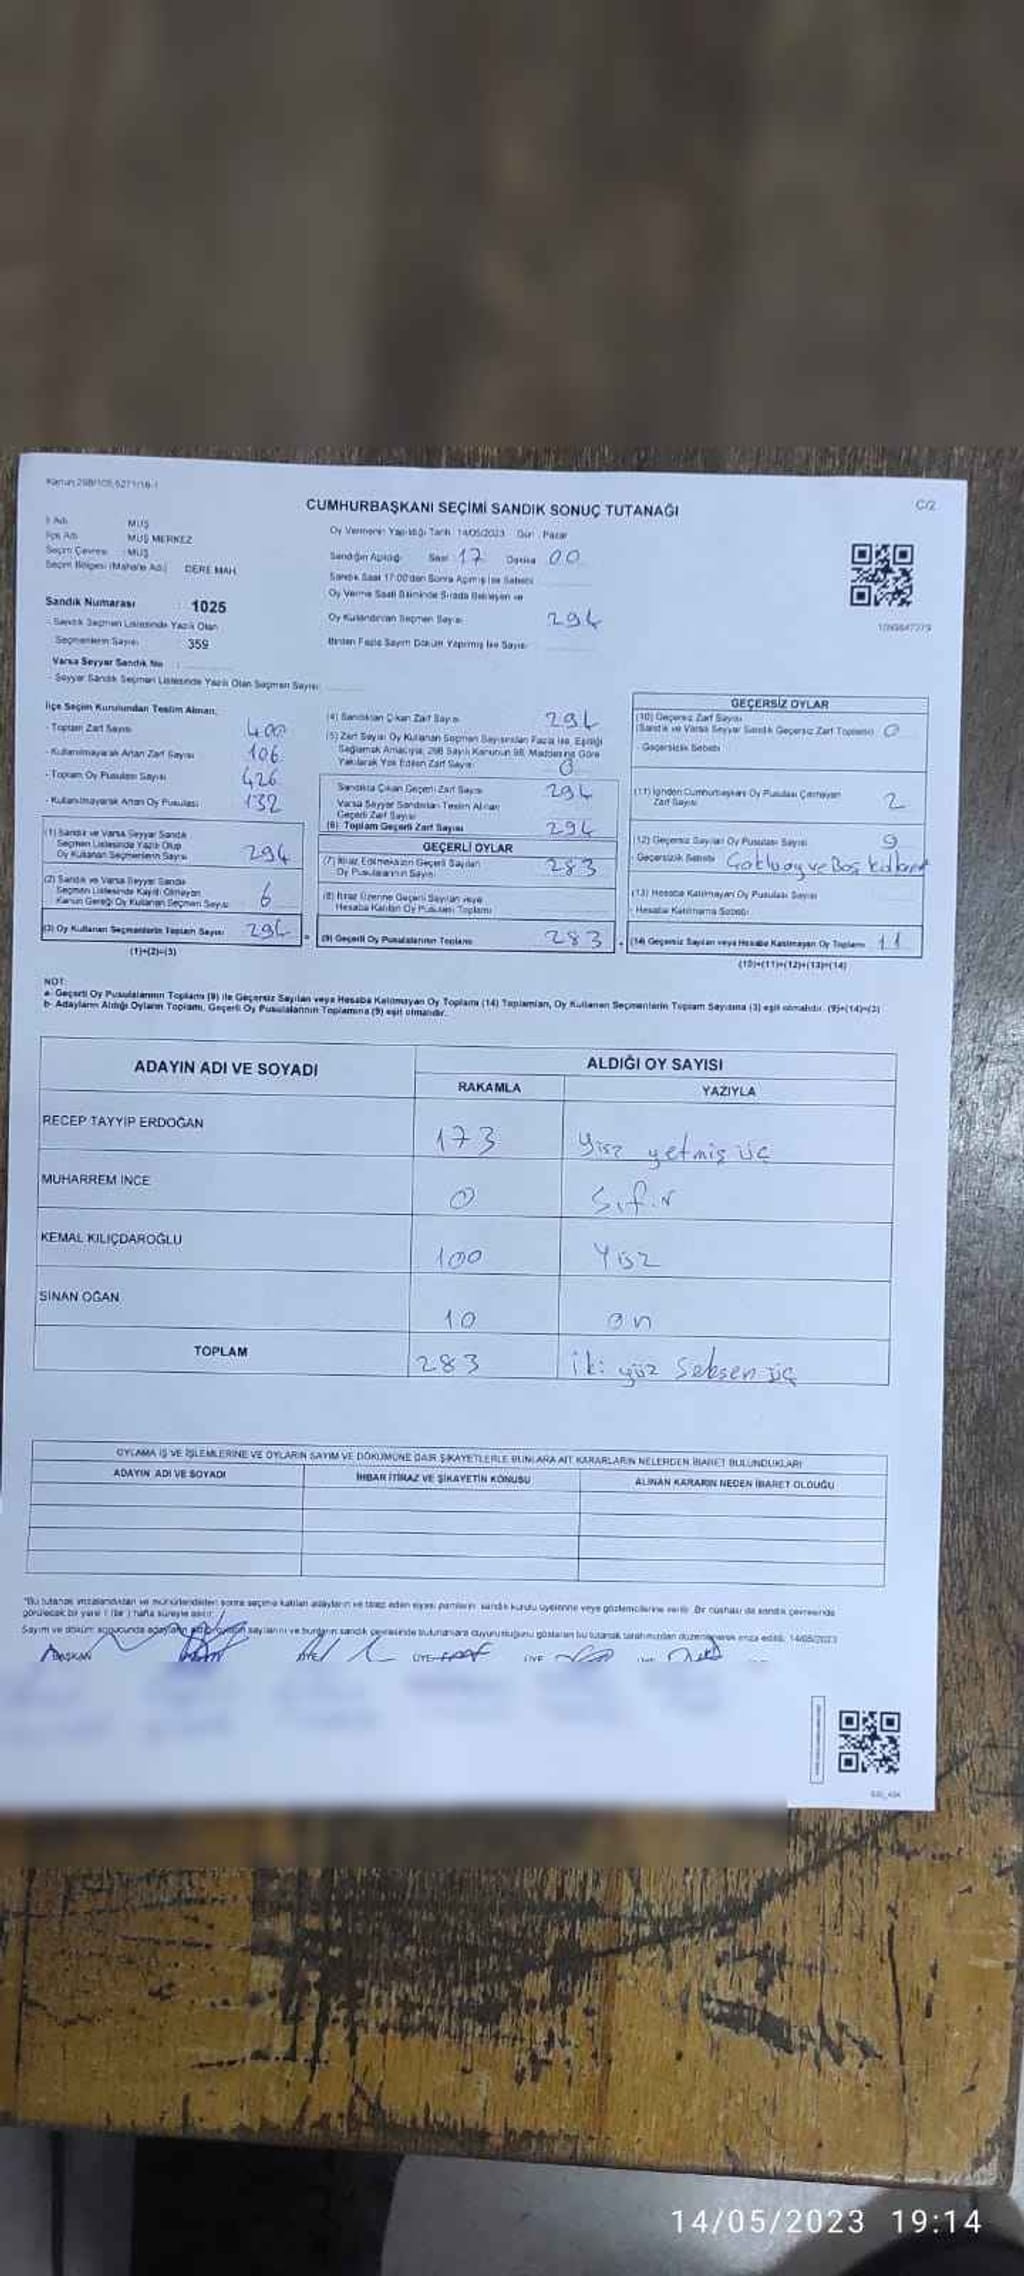 CUMHURBAŞKANI SEÇİMİ SANDIK SONUÇ TUTANAĞI
C/2
İl Adı MUŞ
İlçe Adı MUŞ MERKEZ
Seçim Çevresi : MUŞ
Seçim Bölgesi (Mahalle Adı) DERE MAH.
Sandık Numarası : 1025
- Sandık Seçmen Listesinde Yazılı Olan
Seçmenlerin Sayısı 359
Varsa Seyyar Sandık No :
- Seyyar Sandık Seçmen Listesinde Yazılı Olan Seçmen Sayısı
Oy Vermenin Yapıldığı Tarih 14/05/2023 Gün: Pazar
Sandığın Açıldığı Saat 17 Dakika 00
Sandık Saat 17:00'den Sonra Açılmış İse Sebebi
Oy Verme Saati Bitiminde Sırada Bekleyen ve
Oy Kullandırılan Seçmen Sayısı 294
Birden Fazla Sayım Döküm Yapılmış İse Sayısı
İlçe Seçim Kurulundan Teslim Alınan;
- Toplam Zarf Sayısı 400
- Kullanılmayarak Artan Zarf Sayısı 106
- Toplam Oy Pusulası Sayısı 426
- Kullanılmayarak Artan Oy Pusulası 132
(1) Sandık ve Varsa Seyyar Sandık
Seçmen Listesinde Yazılı Olup
Oy Kullanan Seçmenlerin Sayısı 294
(2) Sandık ve Varsa Seyyar Sandık
Seçmen Listesinde Kayıtlı Olmayan
Kanun Gereği Oy Kullanan Seçmen Sayısı 6
(3) Oy Kullanan Seçmenlerin Toplam Sayısı 294
(1)+(2)=(3)
(4) Sandıktan Çıkan Zarf Sayısı 294
(5) Zarf Sayısı Oy Kullanan Seçmen Sayısından Fazla İse, Eşitliği
Sağlamak Amacıyla, 298 Sayılı Kanunun 98. Maddesine Göre
Yakılarak Yok Edilen Zarf Sayısı 0
Sandıkta Çıkan Geçerli Zarf Sayısı 294
Varsa Seyyar Sandıktan Teslim Alınan
Geçerli Zarf Sayısı
(6) Toplam Geçerli Zarf Sayısı 294
GEÇERLİ OYLAR
(7) İtiraz Edilmeksizin Geçerli Sayılan
Oy Pusulalarının Sayısı 283
(8) İtiraz Üzerine Geçerli Sayılan veya
Hesaba Katılan Oy Pusulası Toplamı
(9) Geçerli Oy Pusulalarının Toplamı 283
GEÇERSİZ OYLAR
(10) Geçersiz Zarf Sayısı
(Sandık ve Varsa Seyyar Sandık Geçersiz Zarf Toplamı) 0
- Geçersizlik Sebebi
(11) İçinden Cumhurbaşkanı Oy Pusulası Çıkmayan
Zarf Sayısı 2
(12) Geçersiz Sayılan Oy Pusulası Sayısı 9
- Geçersizlik Sebebi Çoklu oy ve Boş
(13) Hesaba Katılmayan Oy Pusulası Sayısı
- Hesaba Katılmama Sebebi
(14) Geçersiz Sayılan veya Hesaba Katılmayan Oy Toplamı 11
(10)+(11)+(12)+(13)=(14)
NOT:
a- Geçerli Oy Pusulalarının Toplamı (9) ile Geçersiz Sayılan veya Hesaba Katılmayan Oy Toplamı (14) Toplamları, Oy Kullanan Seçmenlerin Toplam Sayısına (3) eşit olmalıdır. (9)+(14)=(3)
b- Adayların Aldığı Oyların Toplamı, Geçerli Oy Pusulalarının Toplamına (9) eşit olmalıdır.
ADAYIN ADI VE SOYADI ALDIĞI OY SAYISI
RAKAMLA YAZIYLA
RECEP TAYYİP ERDOĞAN 173 Yüz yetmiş üç
MUHARREM İNCE 0 Sıfır
KEMAL KILIÇDAROĞLU 100 Yüz
SİNAN OĞAN 10 on
TOPLAM 283 iki yüz seksen üç
OYLAMA İŞ VE İŞLEMLERİNE VE OYLARIN SAYIM VE DÖKÜMÜNE DAİR ŞİKAYETLERLE BUNLARA AİT KARARLARIN NELERDEN İBARET BULUNDUKLARI
ADAYIN ADI VE SOYADI İHBAR İTİRAZ VE ŞİKAYETİN KONUSU ALINAN KARARIN NEDEN İBARET OLDUĞU
*Bu tutanak imzalandıktan ve mühürlendikten sonra seçime katılan adayların ve itiraz eden siyasi partilerin sandık kurulu üyelerine veya gözlemcilerine verilir. Bir nüshası da sandık çevresinde
görülecek bir yere 1 (bir) hafta süreyle asılır.
Sayım ve döküm sonucunda adayların oy sayılarını ve bunların sandık çevresinde bulunanlara duyurulduğunu gösteren bu tutanak tarafımızdan düzenlenerek imza edildi. 14/05/2023
BAŞKAN ÜYE ÜYE
14/05/2023 19:14